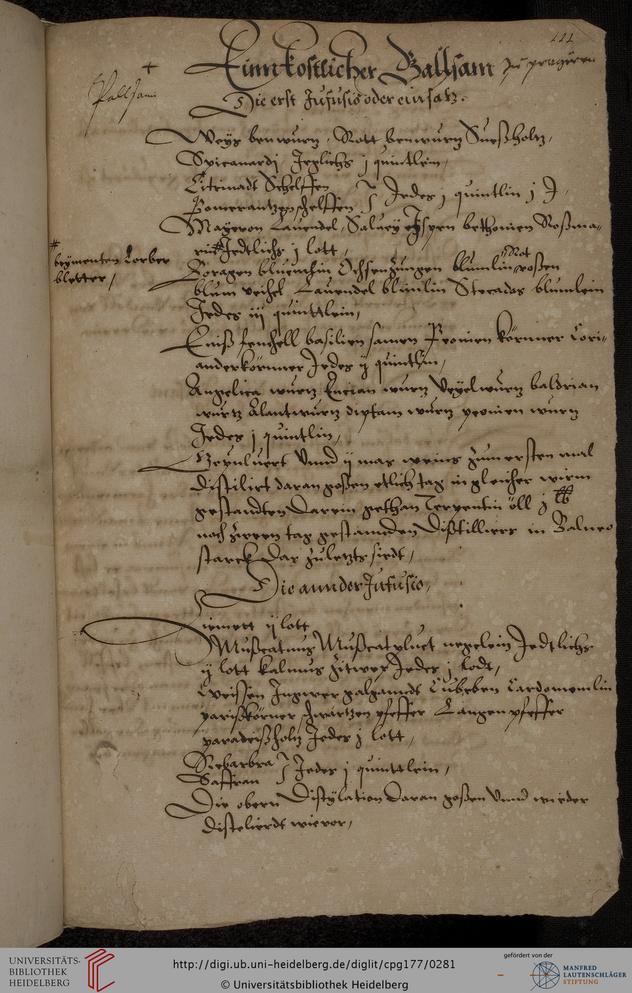 111
Ein kostlicher Ballsam zu
Pallsam
Die erst Jnfusio oder einsatz.
Weys benwurtz, Rott benwurtz Suesholtz,
Spicanardj Jeglichs j quintlein,
Citrinadt Schelffen
Pomerantzen schelffen Jedes j quintlin
Mayeron Lauendel, Salvey Jspen bethonien Roßma-
rin Jedtlichs j lott,
Lorber
bletter,
Boragen bluemlin Ochsenzungen blumlin Rot roßen
blum veihel Lauendel blumlin Stecados blumlein
Jedes iij quinttlein,
Eniß fenchell basilien samen Peonien körnner Cori-
anderkörnner Jedes ij quintlin,
Angelica wurtz Encian wurtz Veyelwurtz baldrian
wurtz Alantwurtz diptam wurtz peonien wurtz
Jedes j quintlin,
Gepuluert Vnnd ij mas weins zum ersten mal
distilirt daran goßen etlich tag in gleicher wirm
gestandten Darein gethan Terpentin öll j lb
noch zween tag gestannden Distillierr in Balneo
starck Dar zuletzts siedt,
Die annder Jnfusio,
Zimett ij lott
Mußcatnus Mußcatpluet negelein Jedtlichs
ij lott kalmus Zitwer Jedes j lodt,
Weissen Jngwer galgandt Cubeben Cardomomlin
parißkörner schwartzen pfeffer Langen pfeffer
paradeißholtz Jedes j lott,
Rebarbra
Saffran Jedes j quinttlein,
Die obern Distylation daran goßen Vnnd wieder
distelierdt wie vor,
UNIVERSITÄTS-
BIBLIOTHEK
HEIDELBERG
http://digi.ub.uni-heidelberg.de/diglit/cpg177/0281
© Universitätsbibliothek Heidelberg
gefördert von der
MANFRED
LAUTENSCHLÄGER
STIFTUNG